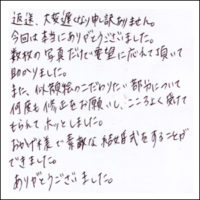 返送、大変遅くなり申し訳ありません。
今回は本当にありがとうございました。
数枚の写真だけで要望に応えて頂いて
助かりました。
また、似顔絵のこだわりたい部分について
何度も修正をお願いし、こころよく受けて
もらえて ホッとしました。
おかげ様で素敵な結婚式をすることが
できました。
ありがとうございました。